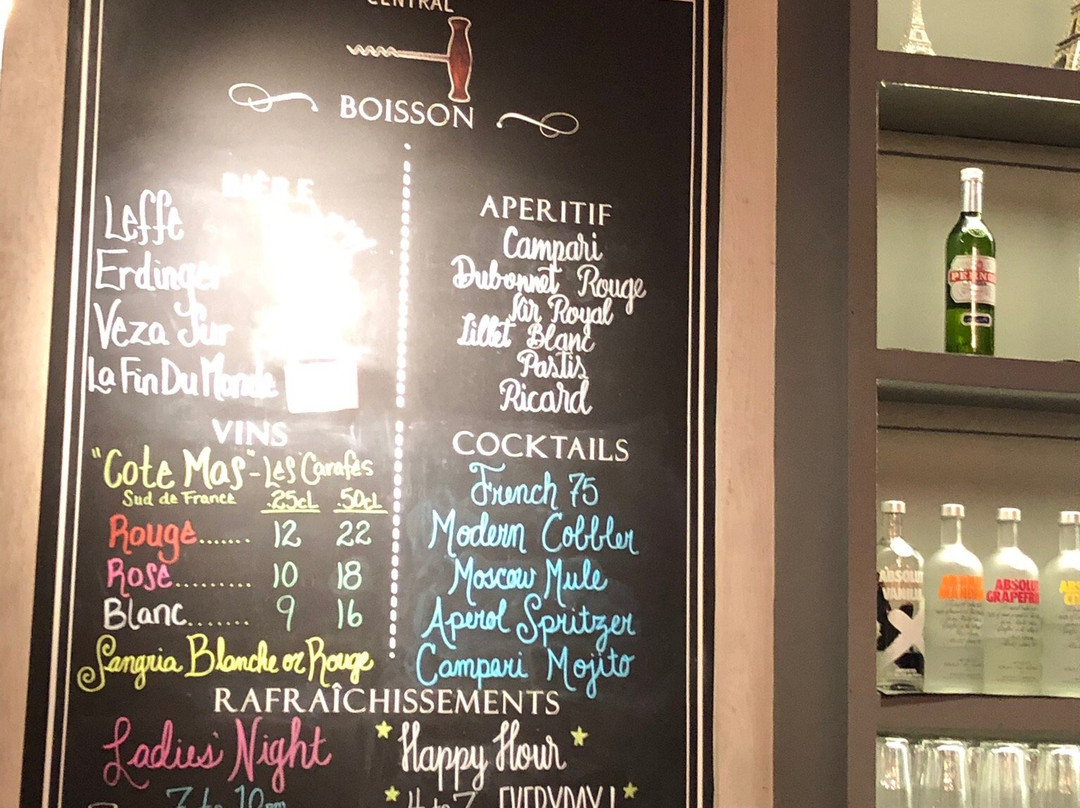 CENTRAL
BOISSON
BIÈRE
Leffe
Erdinger
Veza Sur
La Fin Du Monde
VINS
"Cote Mas" - Les Carafes
Sud de France .25cL .50cL
Rouge....... 12 22
Rose......... 10 18
Blanc....... 9 16
Sangria Blanche or Rouge
APERITIF
Campari
Dubonnet Rouge
Kir Royal
Lillet Blanc
Pastis
Ricard
COCKTAILS
French 75
Modern Cobbler
Moscow Mule
Aperol Spritzer
Campari Mojito
RAFRAÎCHISSEMENTS
Ladies' Night
7 to 10pm
Happy Hour
4 to 7 EVERYDAY!
PERNO
ABSOLUT
VANILIA
ABSOLUT
GRAPEFRU